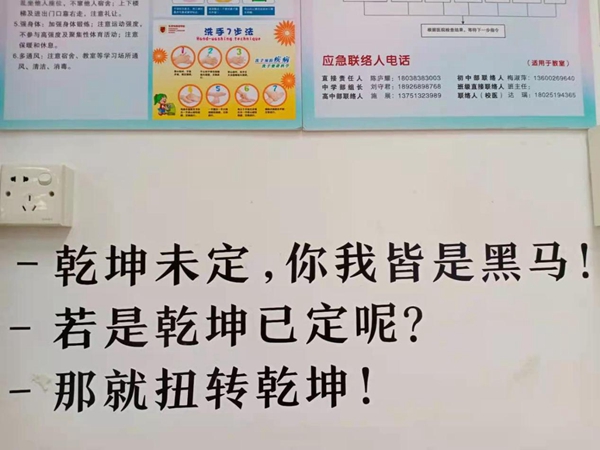 乱坐他人座位，不串他人宿舍；上下楼
梯及进出门口靠右走，注意礼让。
5.强身体，加强身体锻炼；注意运动强度，
不参与高强度及聚集性体育活动；注意
保暖和休息。
6.多通风；注意宿舍、教室等学习场所通
风、清洁、消毒。
洗手7步法
Hand-washing technique
应急联络人电话
（适用于教室）
直接责任人 陈庐耀：18038383003
初中部联络人 梅淑萍：13600269640
中学部组长 刘守君：18926898768
班级直接联络人 班主任：
高中部联络人 施展：13751323989
联络人（校医）
18025194365
- 乾坤未定，你我皆是黑马！
- 若是乾坤已定呢？
- 那就扭转乾坤！